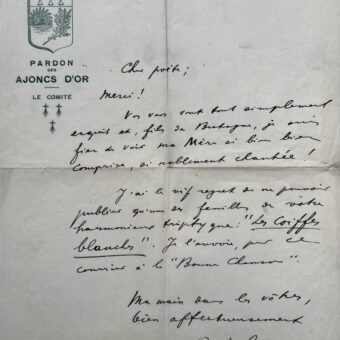 PARDON
DES
AJONCS D'OR
LE COMITÉ
Cher poète,
Merci!
Vos vers sont tout simplement
exquis et, fils de Bretagne, je suis
fier de voir ma Mère si bien
comprise, si noblement chantée!
J'ai le vif regret de ne pouvoir
publier qu'un des feuilles de votre
harmonieux triptyque: "Les Coiffes
blanches". Je l'envoie, par ce
courrier à la "Bonne Chanson".
Ma main dans les vôtres,
bien affectueusement